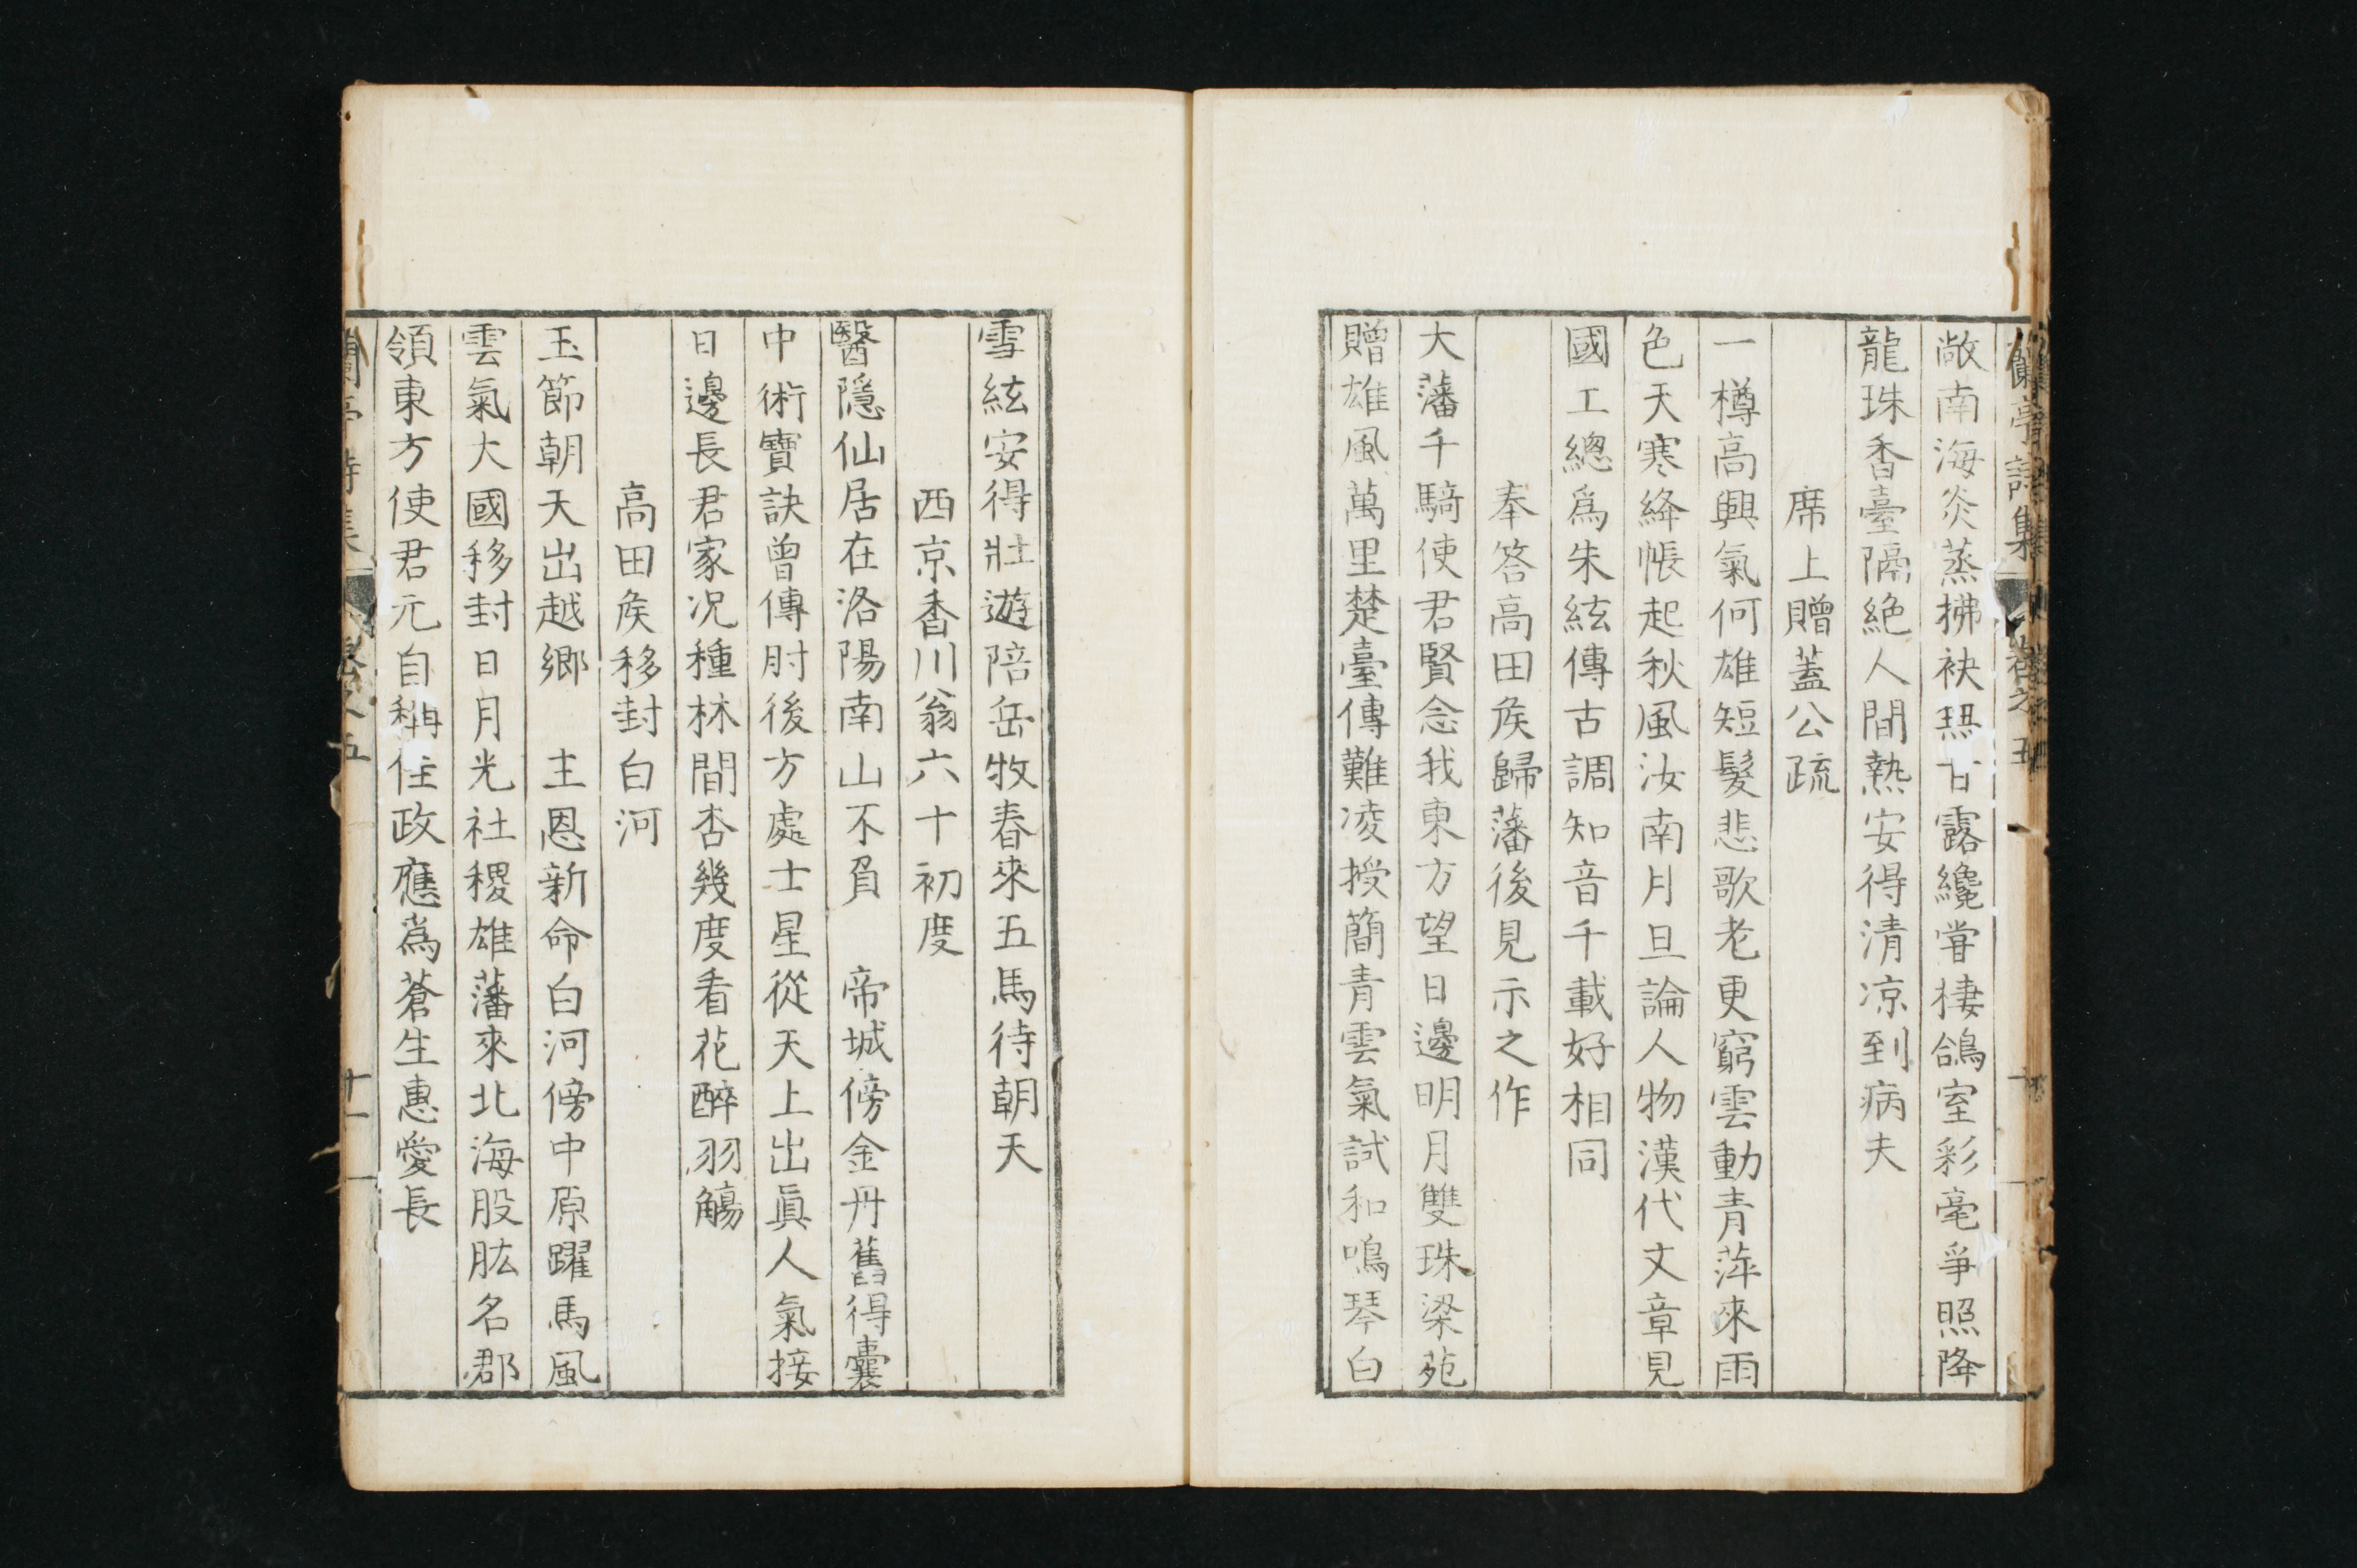 蘭亭詩集 卷之五
敞南海炎蒸拂袂甘露纔甞棲鴿室彩毫爭照降
龍珠香臺隔絶人間熱安得清凉到病夫
席上贈蓋公疏
一樽高興氣何雄短髮悲歌老更窮雲動青萍來雨
色天寒絳帳起秋風汝南月旦論人物漢代文章見
國工總爲朱絃傳古調知音千載好相同
奉答高田矦歸藩後見示之作
大藩千騎使君賢念我東方望日邊明月雙珠梁苑
贈雄風萬里楚臺傳難凌授簡青雲氣試和鳴琴白
雪絃安得壯遊陪岳牧春來五馬待朝天
西京香川翁六十初度
醫隱仙居在洛陽南山不負 帝城傍金丹舊得囊
中術寶訣曾傳肘後方處士星從天上出眞人氣接
日邊長君家况種林間杏幾度看花醉羽觴
高田矦移封白河
玉節朝天出越鄉 主恩新命白河傍中原躍馬風
雲氣大國移封日月光社稷雄藩來北海股肱名郡
領東方使君元自稱佳政應爲蒼生惠愛長
蘭亭詩集 卷之五 十一